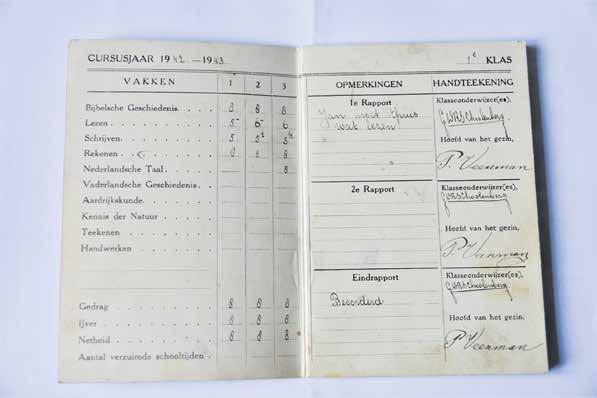 CURSUSJAAR 1942—1943
VAKKEN 1 2 3
Bijbelsche Geschiedenis. 8 8 8
Lezen. 5- 6- 6
Schrijven. 5 5½ 5½
Rekenen 8 8 8
Nederlandsche Taal. 8
Vaderlandsche Geschiedenis.
Aardrijkskunde.
Kennis der Natuur
Teekenen
Handwerken
Gedrag 8 8 8
Ijver 8 8 8
Netheid 8 8 8
Aantal verzuimde schooltijden
1e KLAS
OPMERKINGEN HANDTEEKENING
1e Rapport
Jan moet thuis
wat lezen!
Klasseonderwijzer(es),
Hoofd van het gezin,
P. Veenman
2e Rapport
Klasseonderwijzer(es),
Hoofd van het gezin,
P. Veenman
Eindrapport
Bevorderd
Klasseonderwijzer(es),
Hoofd van het gezin,
P. Veenman